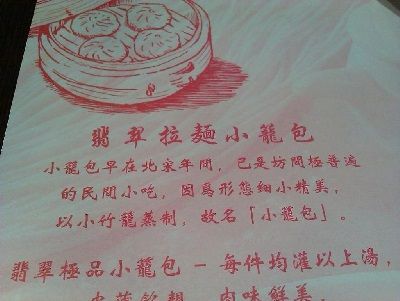 翡翠拉麵小籠包
小籠包早在北宋年間，已是坊間極普遍
的民間小吃，因爲形態細小精美，
以小竹籠蒸制，故名「小籠包」。
翡翠極品小籠包 - 每件均灌以上湯，
肉味鮮美